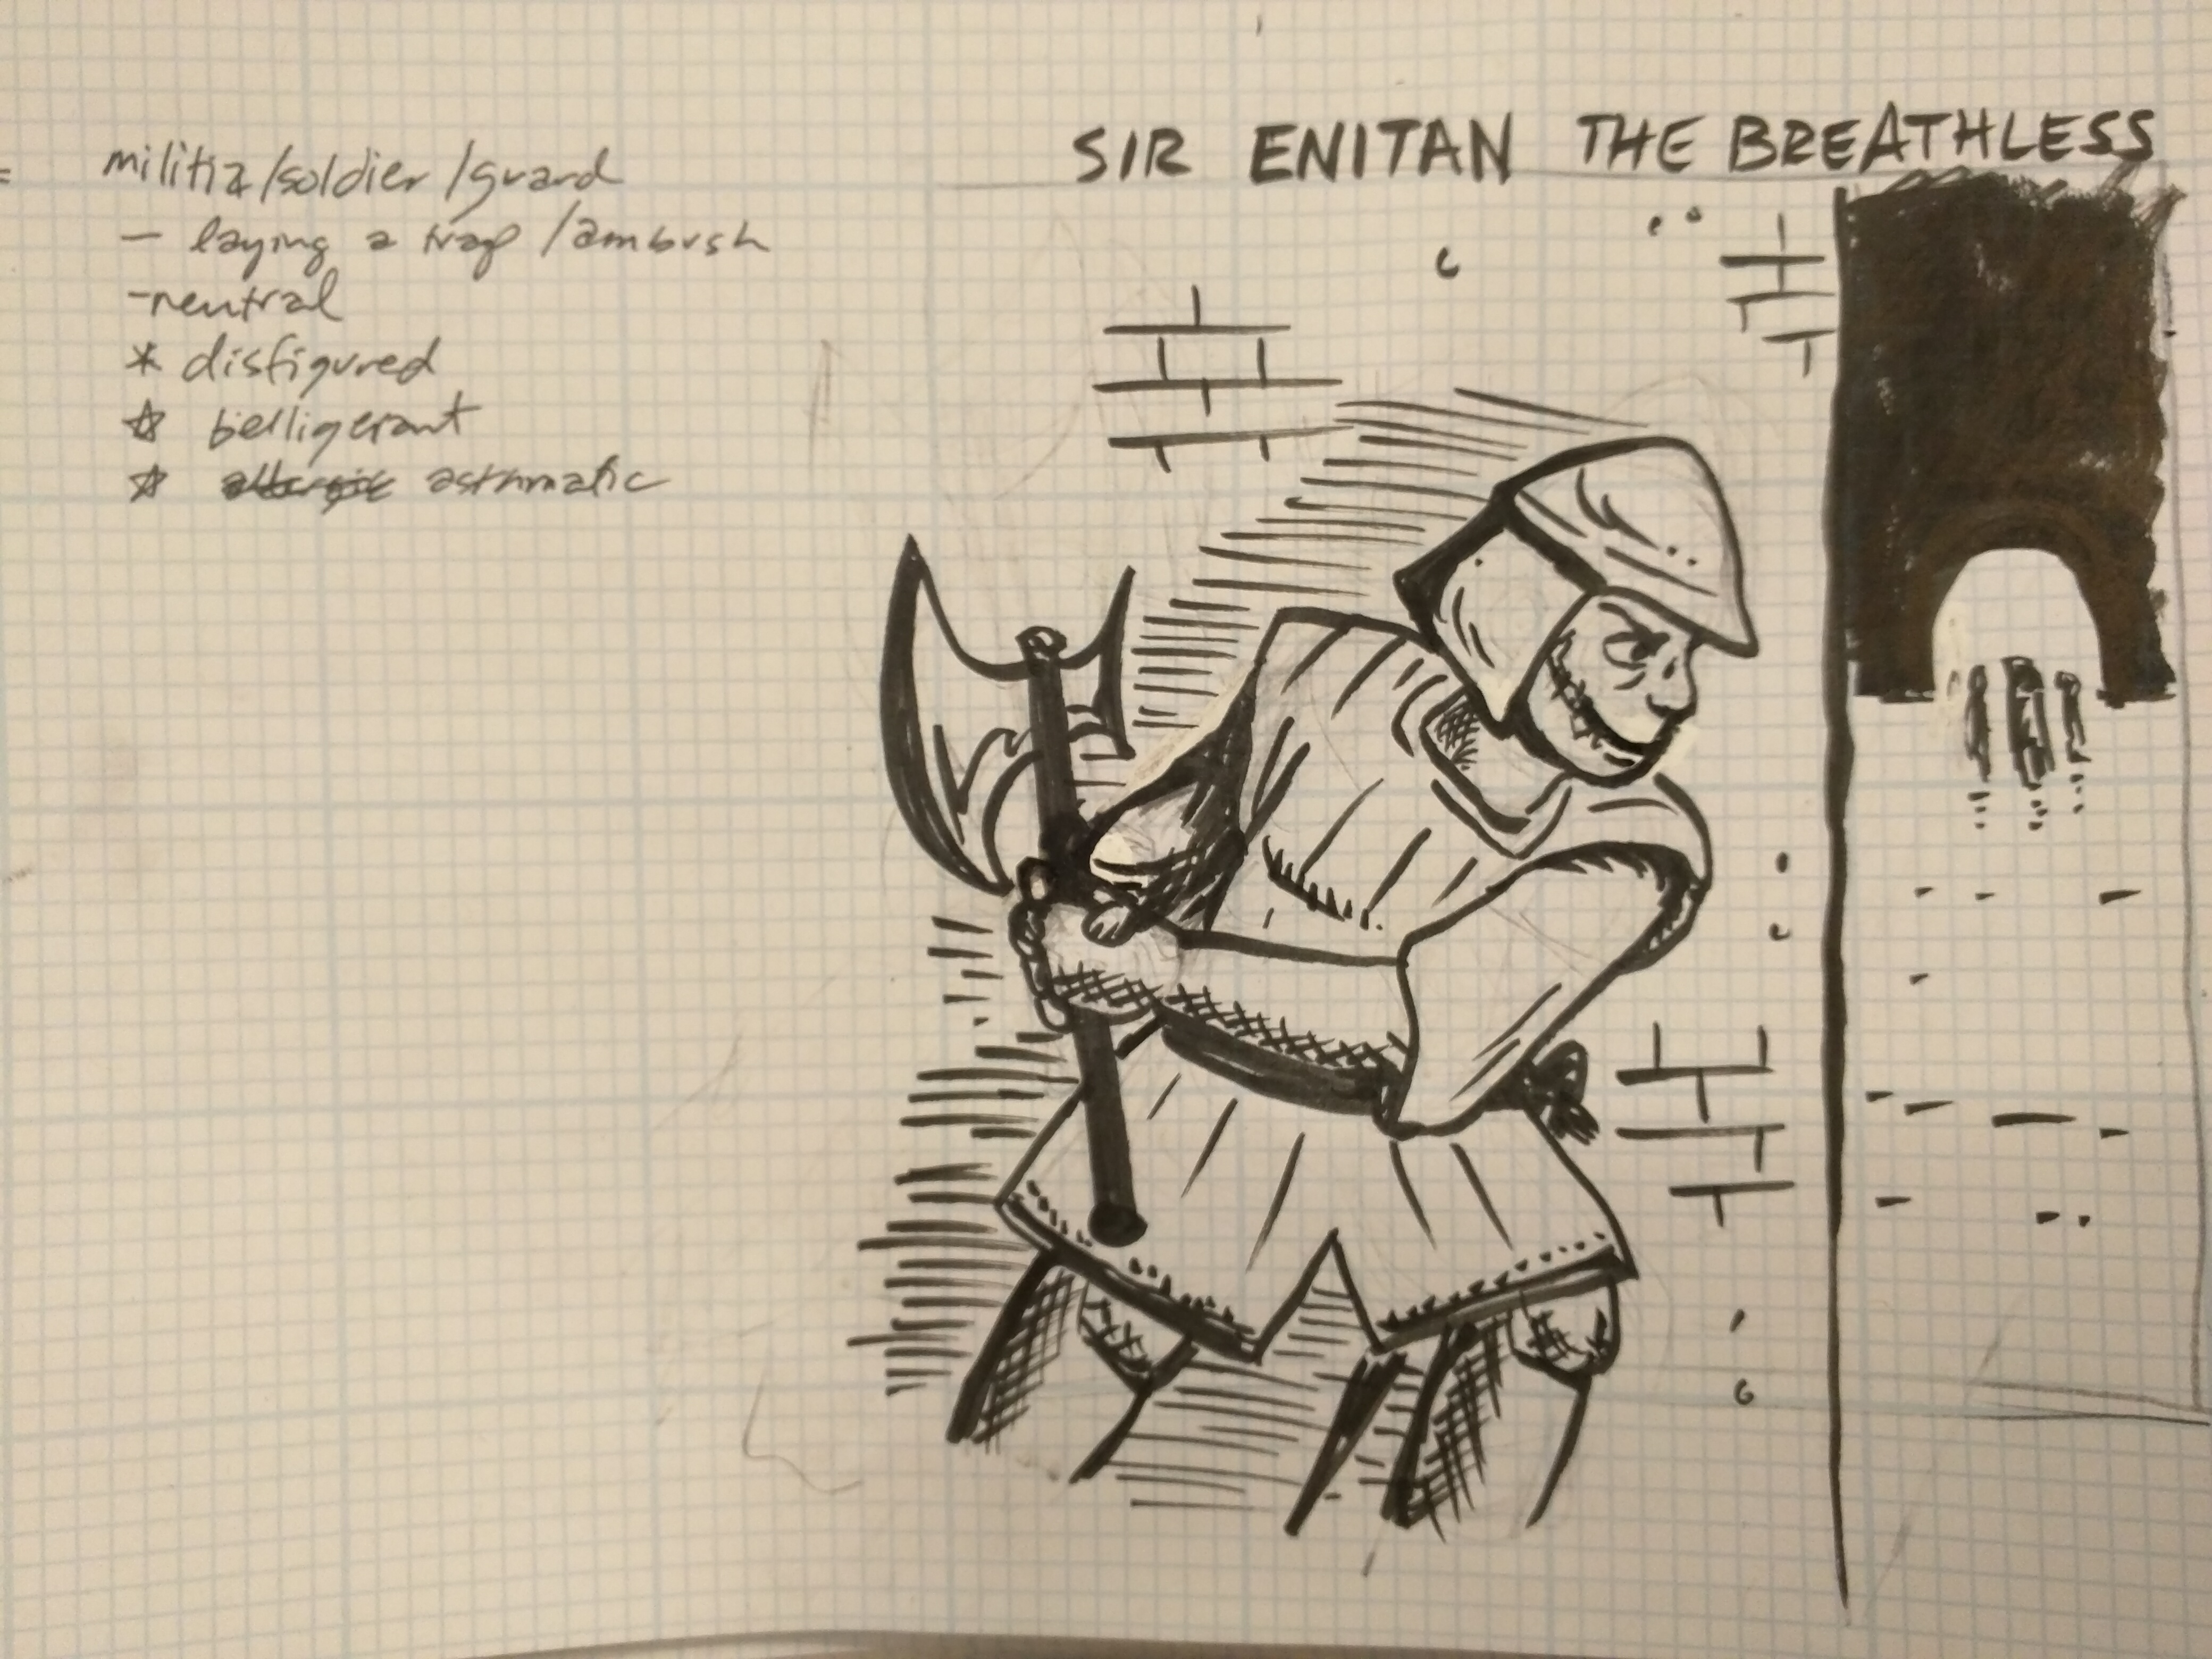 SIR ENITAN THE BREATHLESS
militia/soldier/guard
- laying a trap/ambush
-neutral
* disfigured
☆ belligerant
☆ allergic asthmatic